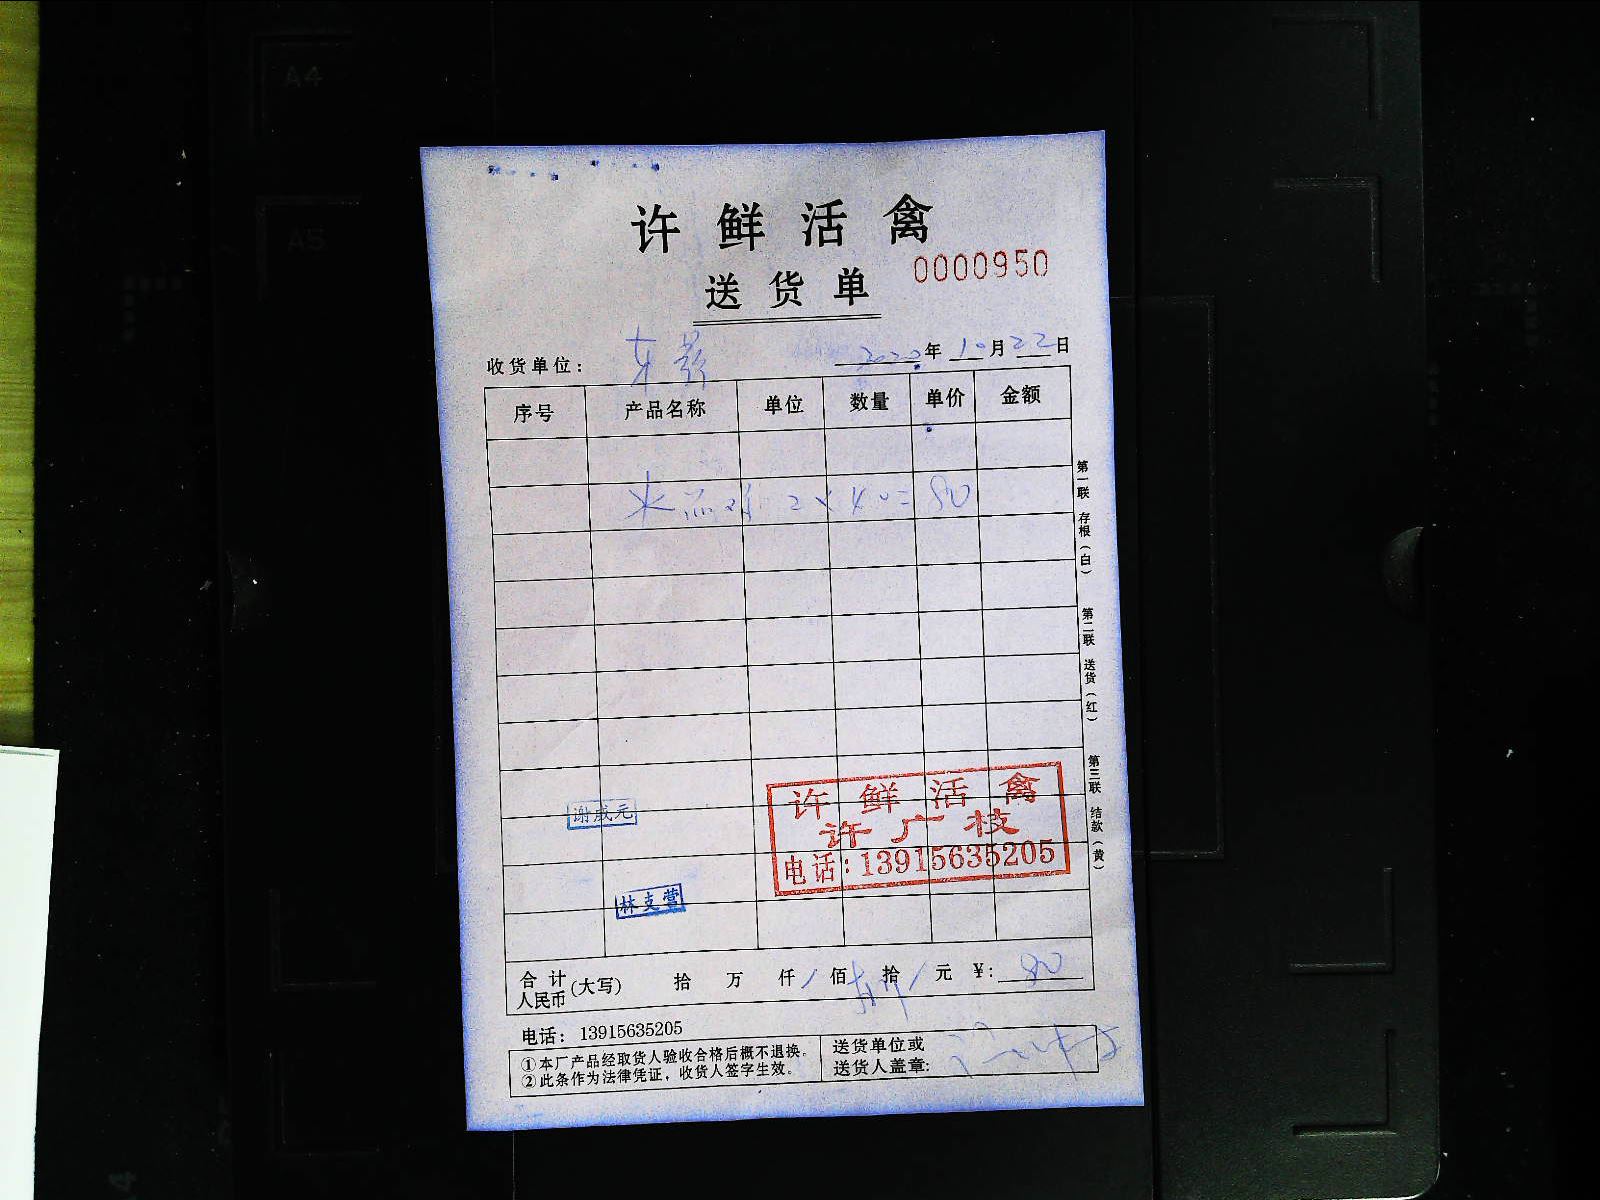 A4
A5
许鲜活禽
送货单
0000950
收货单位：
2020年10月22日
序号 产品名称 单位 数量 单价 金额
2×40=80
第一联 存根（白） 第二联 送货（红） 第三联 结款（黄）
许鲜活禽
许广枝
电话：13915635205
谢成元
林支营
合计人民币(大写) 拾 万 仟 佰 拾 元 ¥：80
电话：13915635205
①本厂产品经取货人验收合格后概不退换。
②此条作为法律凭证，收货人签字生效。
送货单位或
送货人盖章：